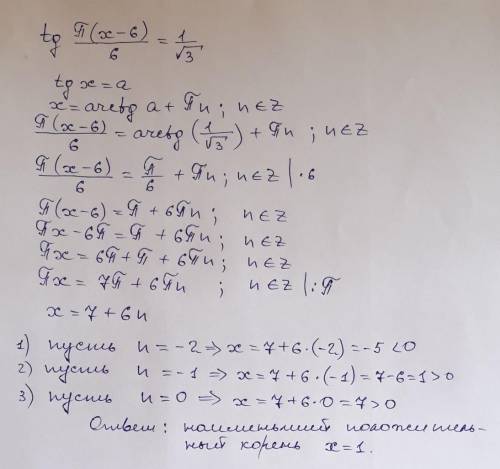 tg П(x-6)/6 = 1/√3
tg x = a
x = arctg a + Пn ; n ∈ Z
П(x-6)/6 = arctg (1/√3) + Пn ; n ∈ Z
П(x-6)/6 = П/6 + Пn ; n ∈ Z | · 6
П(x-6) = П + 6Пn ; n ∈ Z
Пx - 6П = П + 6Пn ; n ∈ Z
Пx = 6П + П + 6Пn ; n ∈ Z
Пx = 7П + 6Пn ; n ∈ Z | : П
x = 7 + 6n
1) пусть n = -2 ⇒ x = 7 + 6 · (-2) = -5 < 0
2) пусть n = -1 ⇒ x = 7 + 6 · (-1) = 7 - 6 = 1 > 0
3) пусть n = 0 ⇒ x = 7 + 6 · 0 = 7 > 0
Ответ : наименьший положитель-
ный корень x = 1.